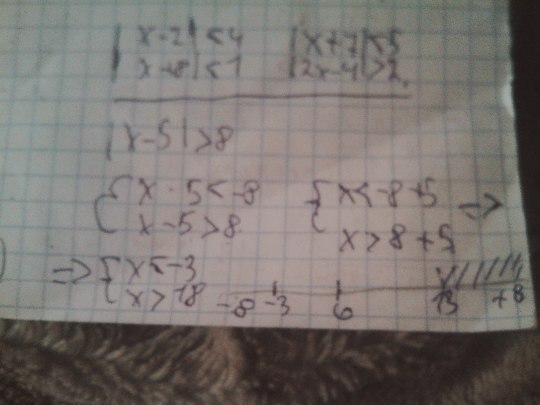 |x-2|<4 |x+7|<5
|x+8|<1 |2x-4|>2
|x-5|>8
{ x-5<-8 { x<-8+5 =>
x-5>8 x>8+5
=> { x<-3
x>18 -∞ -3 0 13 +∞